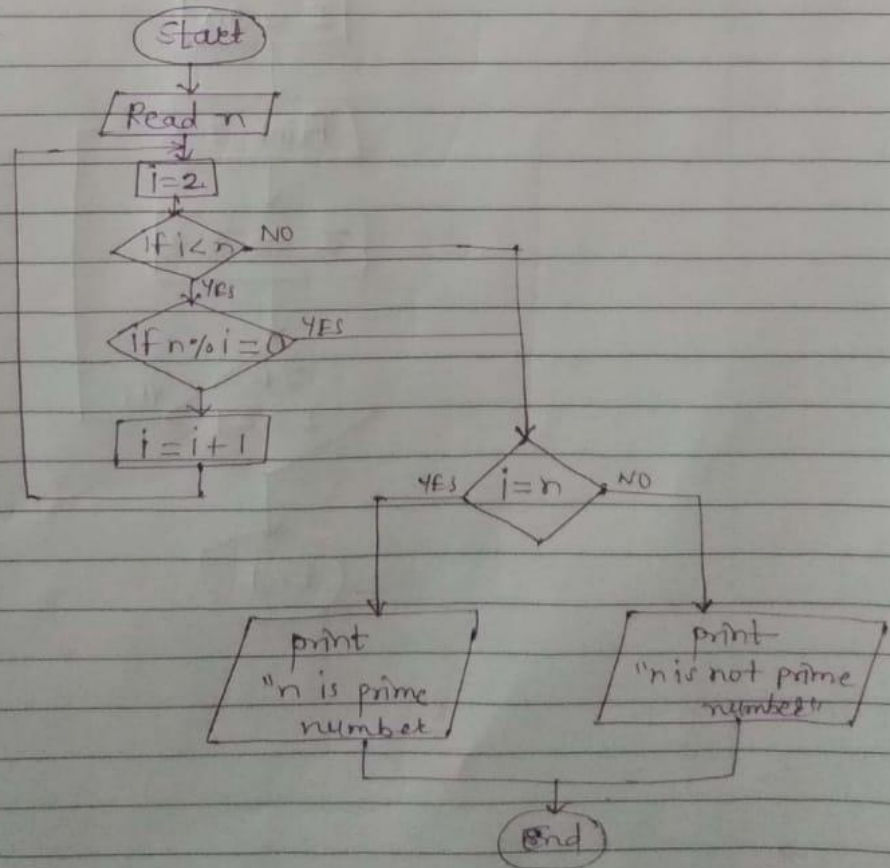 Start
Read n
i=2
if i<n
NO
YES
if n%i=0
YES
i=i+1
YES
i=n
NO
print
"n is prime
number
print
"n is not prime
number"
End